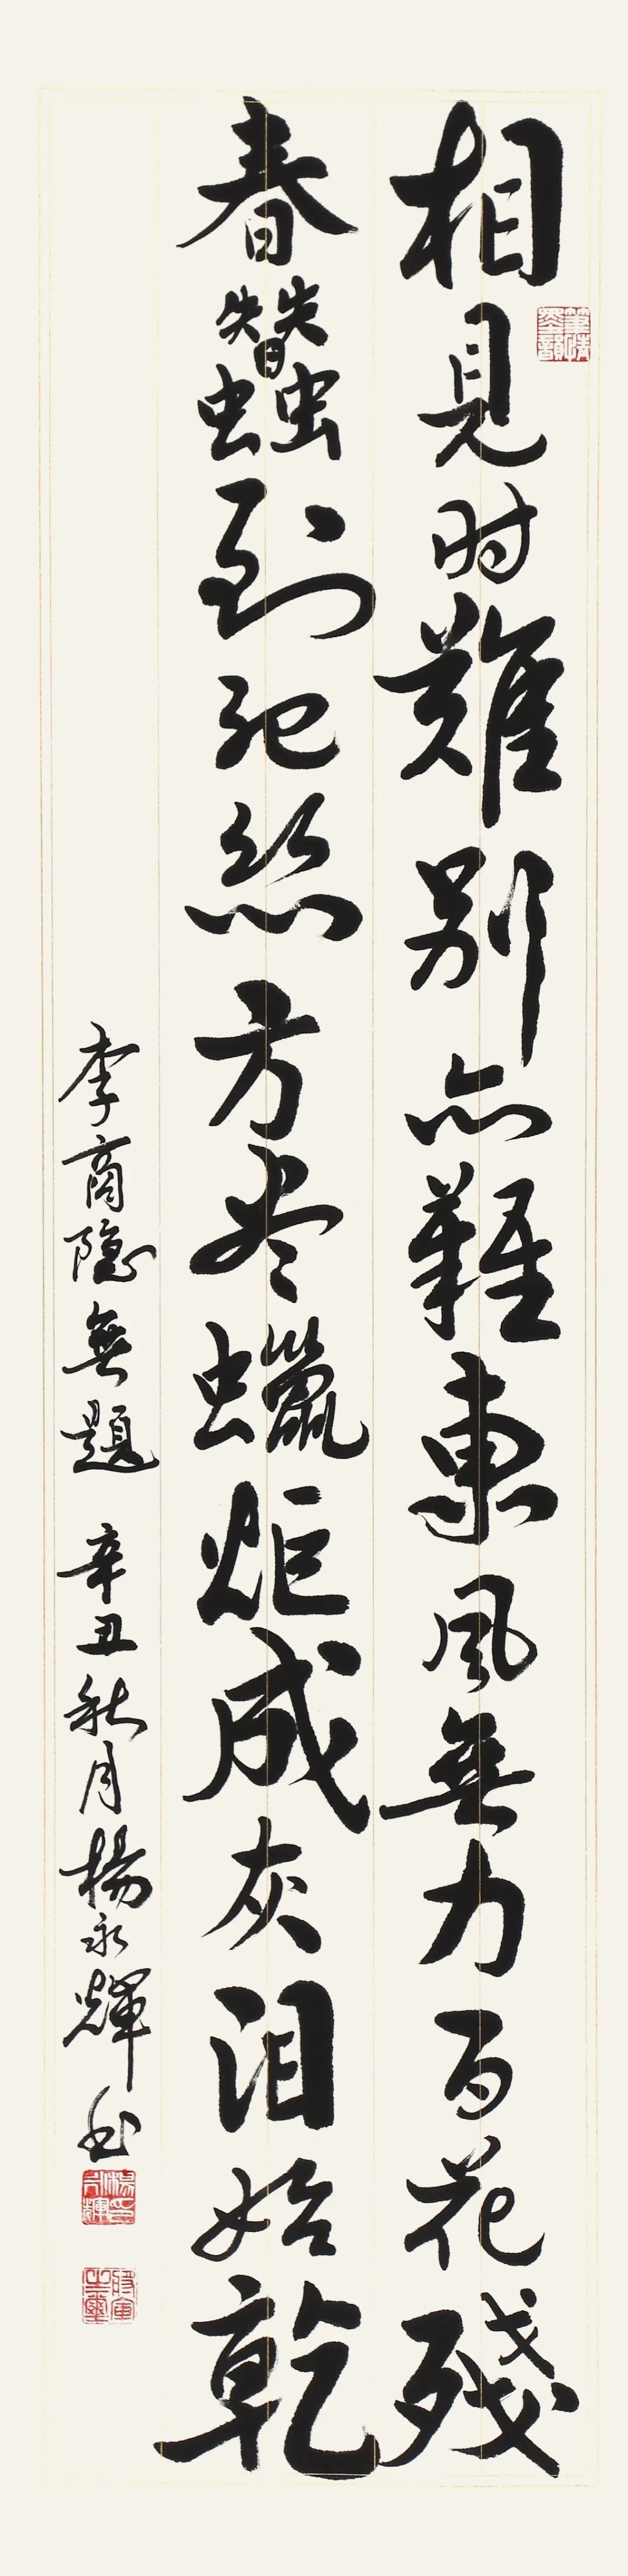 相見时難别亦難東風無力百花殘
春蠶到死絲方尽蠟炬成灰泪始乾
李商隐無題 辛丑秋月楊永輝书